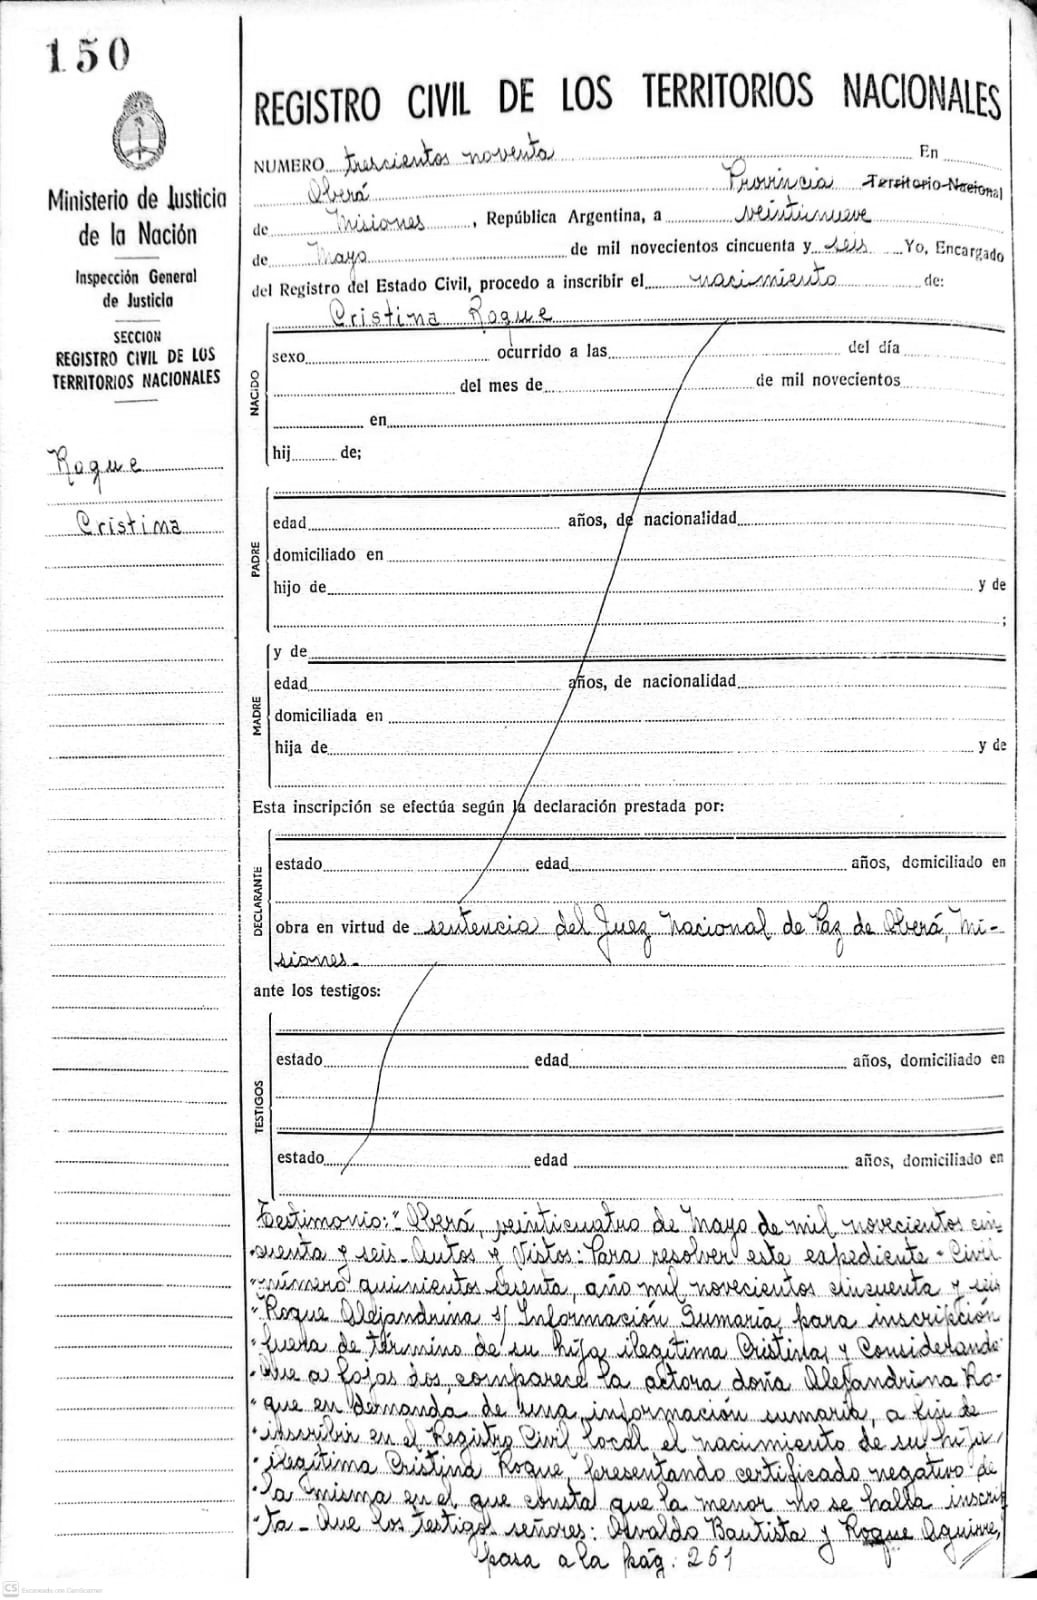 150
Ministerio de Justicia
de la Nación
Inspección General
de Justicia
SECCION
REGISTRO CIVIL DE LOS
TERRITORIOS NACIONALES
Roque
Cristina
REGISTRO CIVIL DE LOS TERRITORIOS NACIONALES
NUMERO trescientos noventa En
Oberá Provincia Territorio Nacional
de Misiones, República Argentina, a veintinueve
de Mayo de mil novecientos cincuenta y seis Yo, Encargado
del Registro del Estado Civil, procedo a inscribir el nacimiento de:
Cristina Roque
NACIDO
sexo ocurrido a las del día
del mes de de mil novecientos
en
hij de;
PADRE
edad años, de nacionalidad
domiciliado en
hijo de y de
;
MADRE
y de
edad años, de nacionalidad
domiciliada en
hija de y de
Esta inscripción se efectúa según la declaración prestada por:
DECLARANTE
estado edad años, domiciliado en
obra en virtud de sentencia del Juez Nacional de Paz de Oberá, Mi-
siones.-
ante los testigos:
TESTIGOS
estado edad años, domiciliado en
estado edad años, domiciliado en
Testimonio: "Oberá, veinticuatro de Mayo de mil novecientos cin-
"cuenta y seis- Autos y Vistos: Para resolver este expediente - Civil
"número quinientos, año mil novecientos cincuenta y seis
"Roque Alejandrina s/ Información Sumaria para inscripción
"fuera de término de su hija ilegítima Cristina, y Considerando:
"Que a fojas dos, comparece la actora doña Alejandrina Ro-
"que en demanda de una información sumaria, a fin de
"inscribir en el Registro Civil local el nacimiento de su hija
"ilegítima Cristina Roque, presentando certificado negativo de
"la misma en el que consta que la menor no se halla inscrip
"ta- Que los testigos señores: Osvaldo Bautista y Roque Aguirre,
pasa a la pág. 251
CS Escaneado con CamScanner